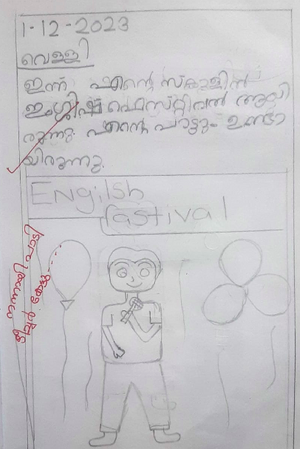 1-12-2023
വെള്ളി
ഇന്ന് എന്റെ സ്കൂളിൽ
ഇംഗ്ലീഷ് ഫെസ്റ്റിവൽ ആയി
രുന്നു. എന്റെ പാട്ടും ഉണ്ടാ
യിരുന്നു.
English
fastival
നന്നായി പാടി